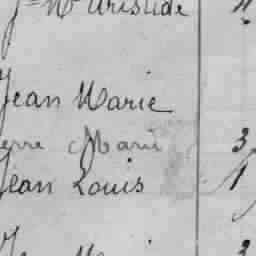 Jn Mie Aristide
Jean Marie
erre Marie 3
Jean Louis 1